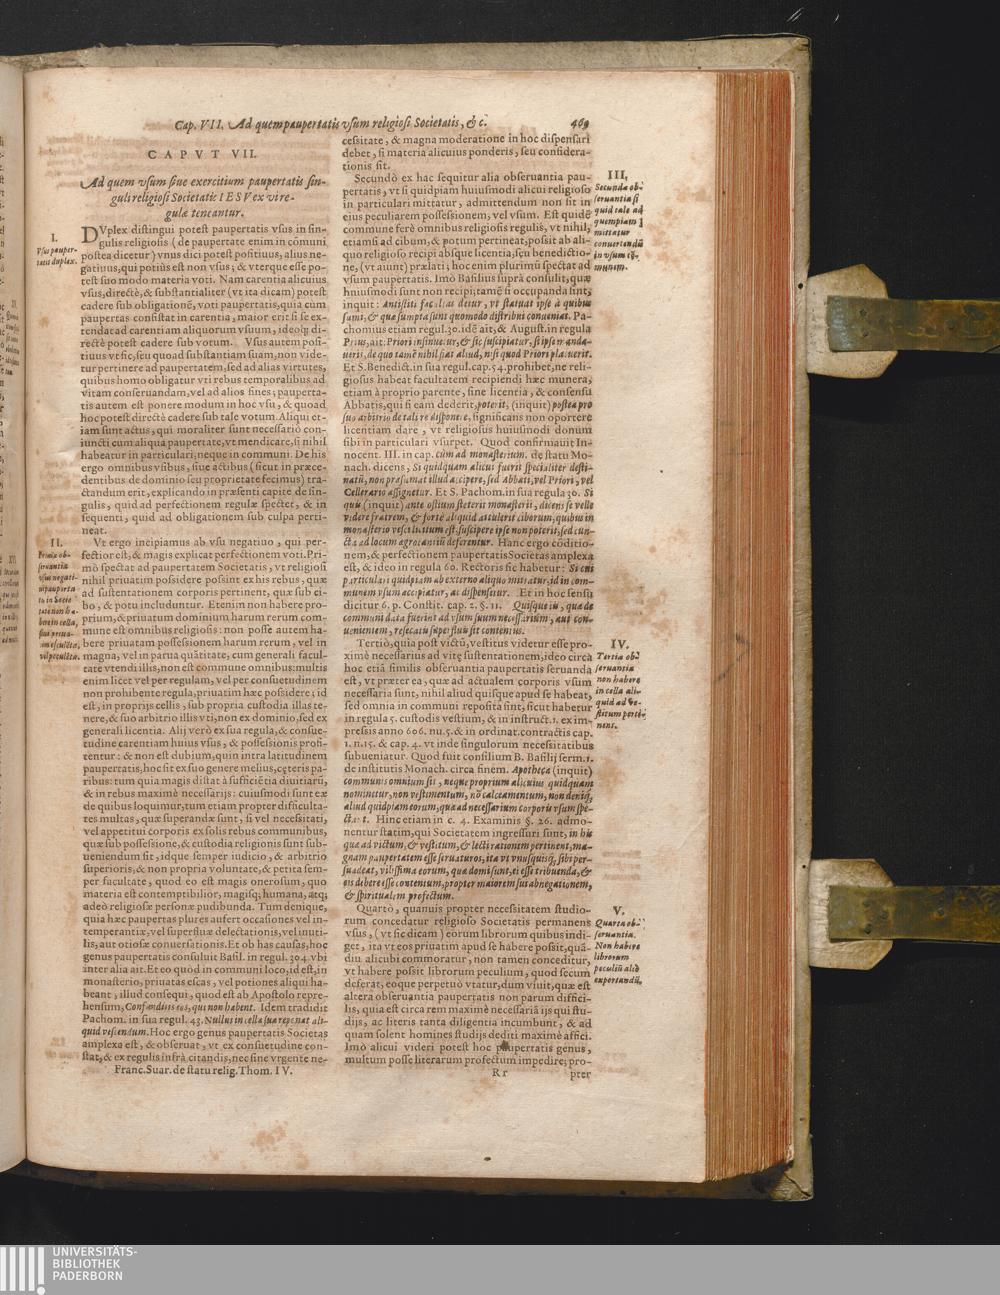 Cap. VII. Ad quem paupertatis vsum religiosi Societatis, &c. 469
CAPVT VII.
Ad quem vsum siue exercitium paupertatis sin-
guli religiosi Societatis IESV ex vi re-
gulæ teneantur.
I.
Vsus pauper-
tatis duplex.
DVplex distingui potest paupertatis vsus in sin-
gulis religiosis (de paupertate enim in cōmuni
postea dicetur) vnus dici potest positiuus, alius ne-
gatiuus, qui potiùs est non vsus; & vterque esse po-
test suo modo materia voti. Nam carentia alicuius
vsus, directè, & substantialiter (vt ita dicam) potest
cadere sub obligationē, voti paupertatis, quia cum
paupertas consistat in carentia, maior erit si se ex-
tendat ad carentiam aliquorum vsuum, ideoq; di-
rectè potest cadere sub votum. Vsus autem posi-
tiuus vt sic, seu quoad substantiam suam, non vide-
tur pertinere ad paupertatem, sed ad alias virtutes,
quibus homo obligatur vti rebus temporalibus ad
vitam conseruandam, vel ad alios fines; pauperta-
tis autem est ponere modum in hoc vsu, & quoad
hoc potest directè cadere sub tale votum. Aliqui et-
iam sunt actus, qui moraliter sunt necessariò con-
iuncti cum aliqua paupertate, vt mendicare, si nihil
habeatur in particulari, neque in communi. De his
ergo omnibus vsibus, siue actibus (sicut in præce-
dentibus de dominio seu proprietate fecimus) tra-
ctandum erit, explicando in præsenti capite de sin-
gulis, quid ad perfectionem regulæ spectet, & in
sequenti, quid ad obligationem sub culpa perti-
neat.
II.
Prima ob-
seruantia
vsus negati-
ui pauperta-
tis in Socie-
tate non ha-
bere in cella,
siue priua-
tim esculēta,
vel poculēta.
Vt ergo incipiamus ab vsu negatiuo, qui per-
fectior est, & magis explicat perfectionem voti. Pri-
mò spectat ad paupertatem Societatis, vt religiosi
nihil priuatim possidere possint ex his rebus, quæ
ad sustentationem corporis pertinent, quæ sub ci-
bo, & potu includuntur. Etenim non habere pro-
prium, & priuatum dominium harum rerum com-
mune est omnibus religiosis: non posse autem ha-
bere priuatam possessionem harum rerum, vel in
magna, vel in parua quātitate, cum generali facul-
tate vtendi illis, non est commune omnibus: multis
enim licet vel per regulam, vel per consuetudinem
non prohibente regula, priuatim hæc possidere; id
est, in proprijs cellis, sub propria custodia illas te-
nere, & suo arbitrio illis vti, non ex dominio, sed ex
generali licentia. Alij verò ex sua regula, & consue-
tudine carentiam huius vsus, & possessionis profi-
tentur: & non est dubium, quin intra latitudinem
paupertatis, hoc sit ex suo genere melius, cęteris pa-
ribus: tum quia magis distat à sufficiētia diuitiarū,
& in rebus maximè necessarijs: cuiusmodi sunt ex
de quibus loquimur, tum etiam propter difficulta-
tes multas, quæ superandæ sunt, si vel necessitati,
vel appetitui corporis ex solis rebus communibus,
quæ sub possessione, & custodia religionis sunt sub-
ueniendum sit, idque semper iudicio, & arbitrio
superioris, & non propria voluntate, & petita sem-
per facultate, quod eo est magis onerosum, quo
materia est contemptibilior, magisq; humana, atq;
adeò religiosæ personæ pudibunda. Tum denique,
quia hæc paupertas plures aufert occasiones vel in-
temperantiæ, vel superfluæ delectationis, vel inuti-
lis, aut otiosæ conuersationis. Et ob has causas, hoc
genus paupertatis consuluit Basil. in regul. 304. vbi
inter alia ait. Et eo quòd in communi loco, id est, in
monasterio, priuatas escas, vel potiones aliqui ha-
beant, illud consequi, quod est ab Apostolo repre-
hensum, Confunditis eos, qui non habent. Idem tradidit
Pachom. in sua regul. 43. Nullus in cella sua reponat ali-
quid vescendum. Hoc ergo genus paupertatis Societas
amplexa est, & obseruat, vt ex consuetudine con-
stat, & ex regulis infrà citandis, nec sine vrgente ne-
Franc. Suar. de statu relig. Thom. IV.
cessitate, & magna moderatione in hoc dispensari
debet, si materia alicuius ponderis, seu considera-
tionis sit.
III.
Secunda ob-
seruantia si
quid tale ad
quempiam
mittatur
conuertendū
in vsum cō-
munem.
Secundò ex hac sequitur alia obseruantia pau-
pertatis, vt si quidpiam huiusmodi alicui religioso
in particulari mittatur, admittendum non sit in
eius peculiarem possessionem, vel vsum. Est quidē
commune ferè omnibus religiosis regulis, vt nihil,
etiamsi ad cibum, & potum pertineat, possit ab ali-
quo religioso recipi absque licentia, seu benedictio-
ne, (vt aiunt) prælati; hoc enim plurimū spectat ad
vsum paupertatis. Imò Basilius suprà consulit, quæ
huiusmodi sunt non recipi, tamē si occupanda sint,
inquit: Antistiti facultas detur, vt statuat ipse à quibus
sumi, & quæ sumpta sunt quomodo distribui conueniat. Pa-
chomius etiam regul. 30. idē ait, & August. in regula
Prius, ait: Priori insinuetur, & sic suscipiatur, si ipse manda-
uerit, de quo tamē nihil fiat aliud, nisi quod Priori placuerit.
Et S. Benedict. in sua regul. cap. 54. prohibet, ne reli-
giosus habeat facultatem recipiendi hæc munera,
etiam à proprio parente, sine licentia, & consensu
Abbatis, qui si eam dederit, poterit, (inquit) postea pro
suo arbitrio de tali re disponere, significans non oportere
licentiam dare, vt religiosus huiusmodi donum
sibi in particulari vsurpet. Quod confirmauit In-
nocent. III. in cap. cùm ad monasterium. de statu Mo-
nach. dicens, Si quidquam alicui fuerit specialiter desti-
natū, non præsumat illud accipere, sed Abbati, vel Priori, vel
Cellerario assignetur. Et S. Pachom. in sua regula 30. Si
quis (inquit) ante ostium steterit monasterii, dicens se velle
videre fratrem, & fortè aliquid attulerit ciborum, quibus in
monasterio vesci licitum est, suscipere ipse non poterit, sed cun-
cta ad locum ægrotantiū deferentur. Hanc ergo cōditio-
nem, & perfectionem paupertatis Societas amplexa
est, & ideo in regula 60. Rectoris sic habetur: Si cui
particulari quidpiam ab externo aliquo mittatur, id in com-
munem vsum accipiatur, ac dispensetur. Et in hoc sensu
dicitur 6. p. Constit. cap. 2. §. 11. Quisque iis, quæ de
communi data fuerint ad vsum suum necessarium, aut con-
uenientem, resecatu superfluis sit contentus.
IV.
Tertia ob-
seruantia
non habere
in cella ali-
quid ad ve-
stitum perti-
nens.
Tertiò, quia post victū, vestitus videtur esse pro-
ximè necessarius ad vitę sustentationem, ideo circa
hoc etiā similis obseruantia paupertatis seruanda
est, vt præter ea, quæ ad actualem corporis vsum
necessaria sunt, nihil aliud quisque apud se habeat,
sed omnia in communi reposita sint, sicut habetur
in regula 5. custodis vestium, & in instruct. 1. ex im-
pressis anno 606. nu. 5. & in ordinat. contractis cap.
1. n. 15. & cap. 4. vt inde singulorum necessitatibus
subueniatur. Quod fuit consilium B. Basilij serm. 1.
de institutis Monach. circa finem. Apotheca (inquit)
communis omnium sit, neque proprium alicuius quidquam
nominetur, non vestimentum, nō calceamentum, non deniq;
aliud quidpiam eorum, quæ ad necessarium corporis vsum spe-
ctant. Hinc etiam in c. 4. Examinis §. 26. admo-
nentur statim, qui Societatem ingressuri sunt, in his
quæ ad victum, & vestitum, & lecti rationem pertinent, ma-
gnam paupertatem esse seruaturos, ita vt vnusquisq; sibi per-
suadeat, vilissima eorum, quæ domi sunt, ei esse tribuenda, &
eis debere esse contentum, propter maiorem sui abnegationem,
& spiritualem profectum.
V.
Quarta ob-
seruantia.
Non habere
librorum
peculiū aliò
exportandū.
Quartò, quanuis propter necessitatem studio-
rum concedatur religioso Societatis permanens
vsus, (vt sic dicam) eorum librorum quibus indi-
get, ita vt eos priuatim apud se habere possit, quā-
diu alicubi commoratur, non tamen conceditur,
vt habere possit librorum peculium, quod secum
deferat, eoque perpetuò vtatur, dum viuit, quæ est
altera obseruantia paupertatis non parum diffici-
lis, quia est circa rem maximè necessariā ijs qui stu-
dijs, ac literis tanta diligentia incumbunt, & ad
quam solent homines studijs dediti maximè affici.
Imò alicui videri potest hoc paupertatis genus,
multum posse literarum profectum impedire; pro-
Rr
pter
UNIVERSITÄTS-
BIBLIOTHEK
PADERBORN